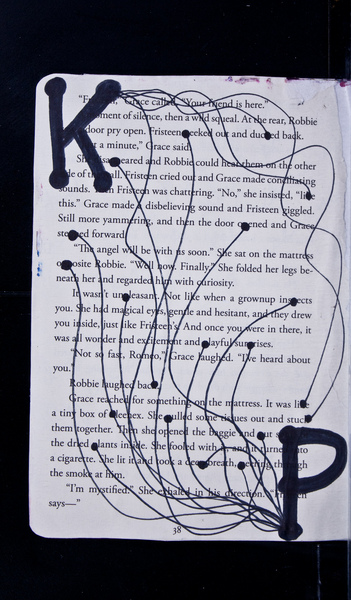 K
Grace called. "Your friend is here."
ment of silence, then a wild squeal. At the rear, Robbie
door pry open. Fristeen eeked out and du ed back.
t a minute," Grace said.
She eared and Robbie could hear them on the other
side of the all. Fristeen cried out and Grace made conciliating
sounds. Then Fristeen was chattering. "No," she insisted, "like
this." Grace made a disbelieving sound and Fristeen giggled.
Still more yammering, and then the door o ned and Grace
ste ed forward.
"The angel will be with us soon." She sat on the mattress
o osite Robbie. "Well now. Finally." She folded her legs be-
neath her and regarded him with curiosity.
It wasn't leasant. Not like when a grownup ins ects
you. She had magical eyes, gentle and hesitant, and they drew
you inside, just like Fristeen's. And once you were in there, it
was all wonder and excitement and layful sur rises.
"Not so fast, Romeo," Grace laughed. "I've heard about
you."
Robbie laughed back.
Grace reached for something on the mattress. It was like
a tiny box of leenex. She ulled some tissues out and stuck
them together. Then she opened the baggie and ut s
the dried lants inside. She fooled with it, and it turned into
a cigarette. She lit it and took a dee breath, eering through
the smoke at him.
"I'm mystified." She exhaled in his direction.
says—"
P
38